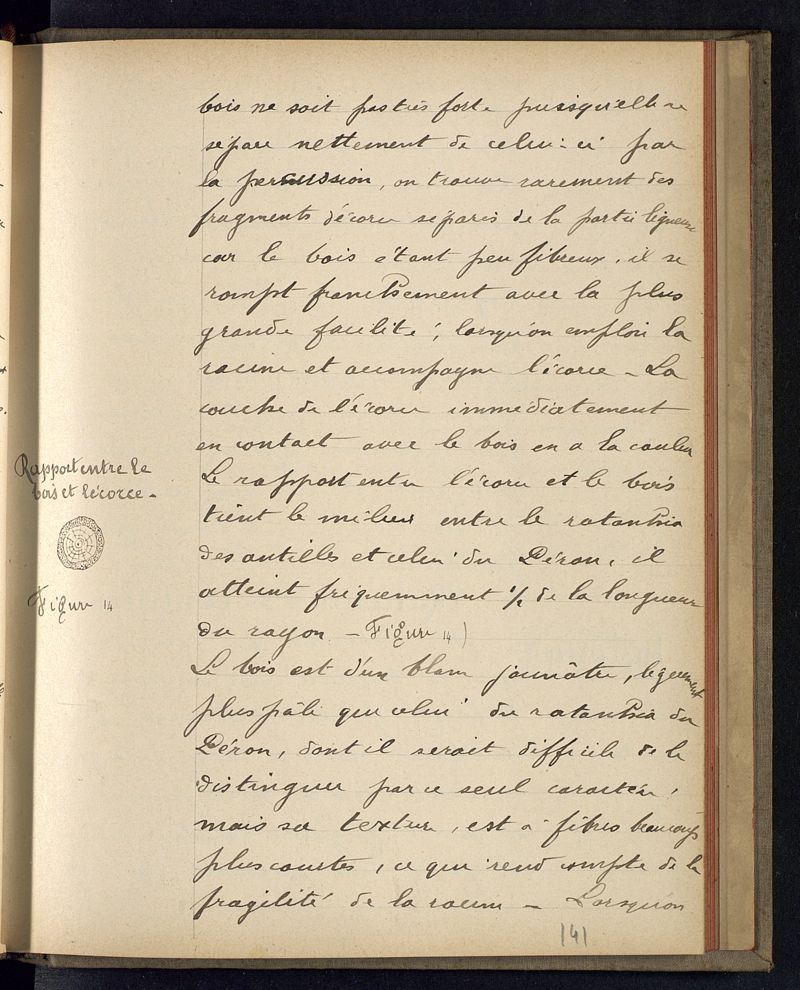 bois ne soit pas très forte puisqu'elle se
sépare nettement de celui-ci par
la percussion, on trouve rarement des
fragments d'écorce séparés de la partie ligneuse
car le bois étant peu fibreux, il se
rompt franchement avec la plus
grande facilité, lorsqu'on emploi la
racine et accompagne l'écorce - La
couche de l'écorce immédiatement
en contact avec le bois en a la couleur
Le rapport entre l'écorce et le bois
tient le milieu entre le ratanhia
des antilles et celui du Pérou, il
atteint fréquemment 1/2 de la longueur
du rayon - Figure 14)
Le bois est d'un blanc jaunâtre, légèrement
plus pâle que celui du ratanhia du
Pérou, dont il serait difficile de le
distinguer par ce seul caractère,
mais sa texture, est à fibres beaucoup
plus courtes, ce qui rend compte de la
fragilité de la racine - Lorsqu'on
Rapport entre le
bois et l'écorce -
Figure 14
141